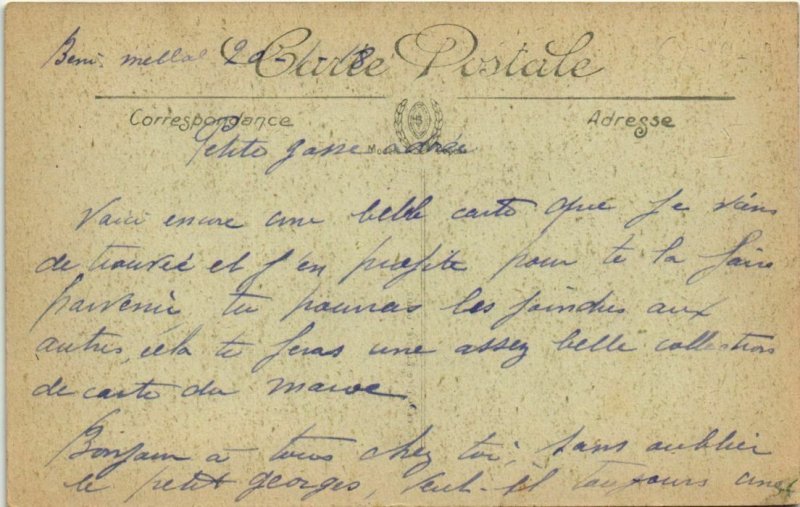 Beni mellal 20-1-18
Carte Postale
Correspondance
Adresse
Petite gosse
Voici encore une belle carte que je viens
de trouvée et j'en profite pour te la faire
parvenir, tu pourras les joindres aux
autres, cela te feras une assez belle collection
de carte du maroc.
Bonjour à tous chez toi, sans oublier
le petit georges, veut-il toujours